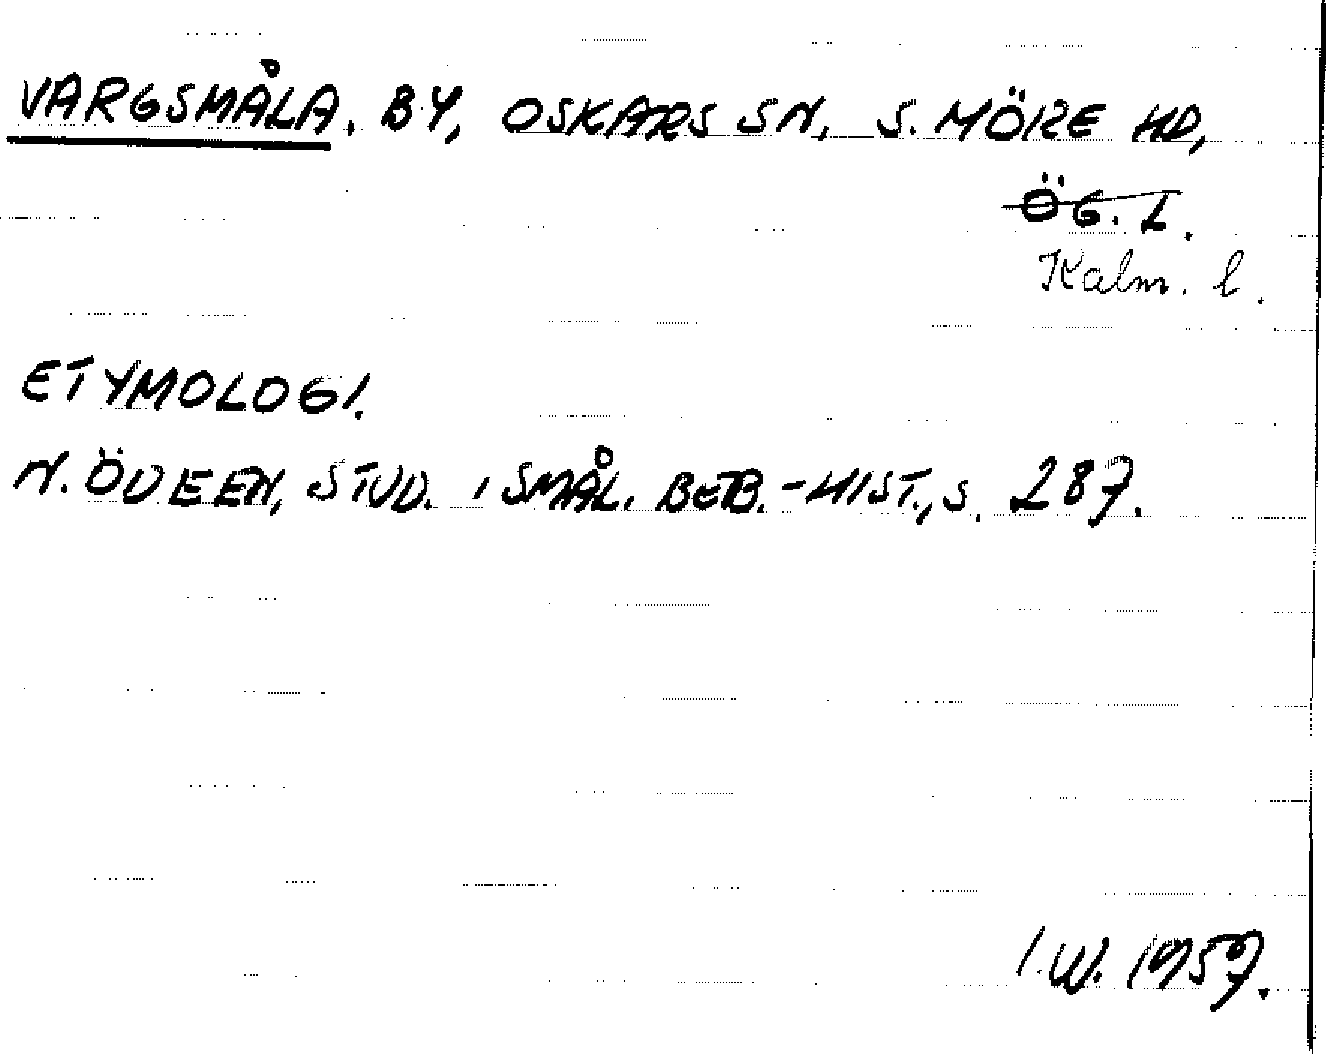 VARGSMÅLA, BY, OSKARS SN, S. MÖRE HD,
ÖG. L.
Kalm. l.
ETYMOLOGI.
N. ÖDEEN, STUD. I SMÅL. BEB.-HIST., S. 287.
I.W. 1959.